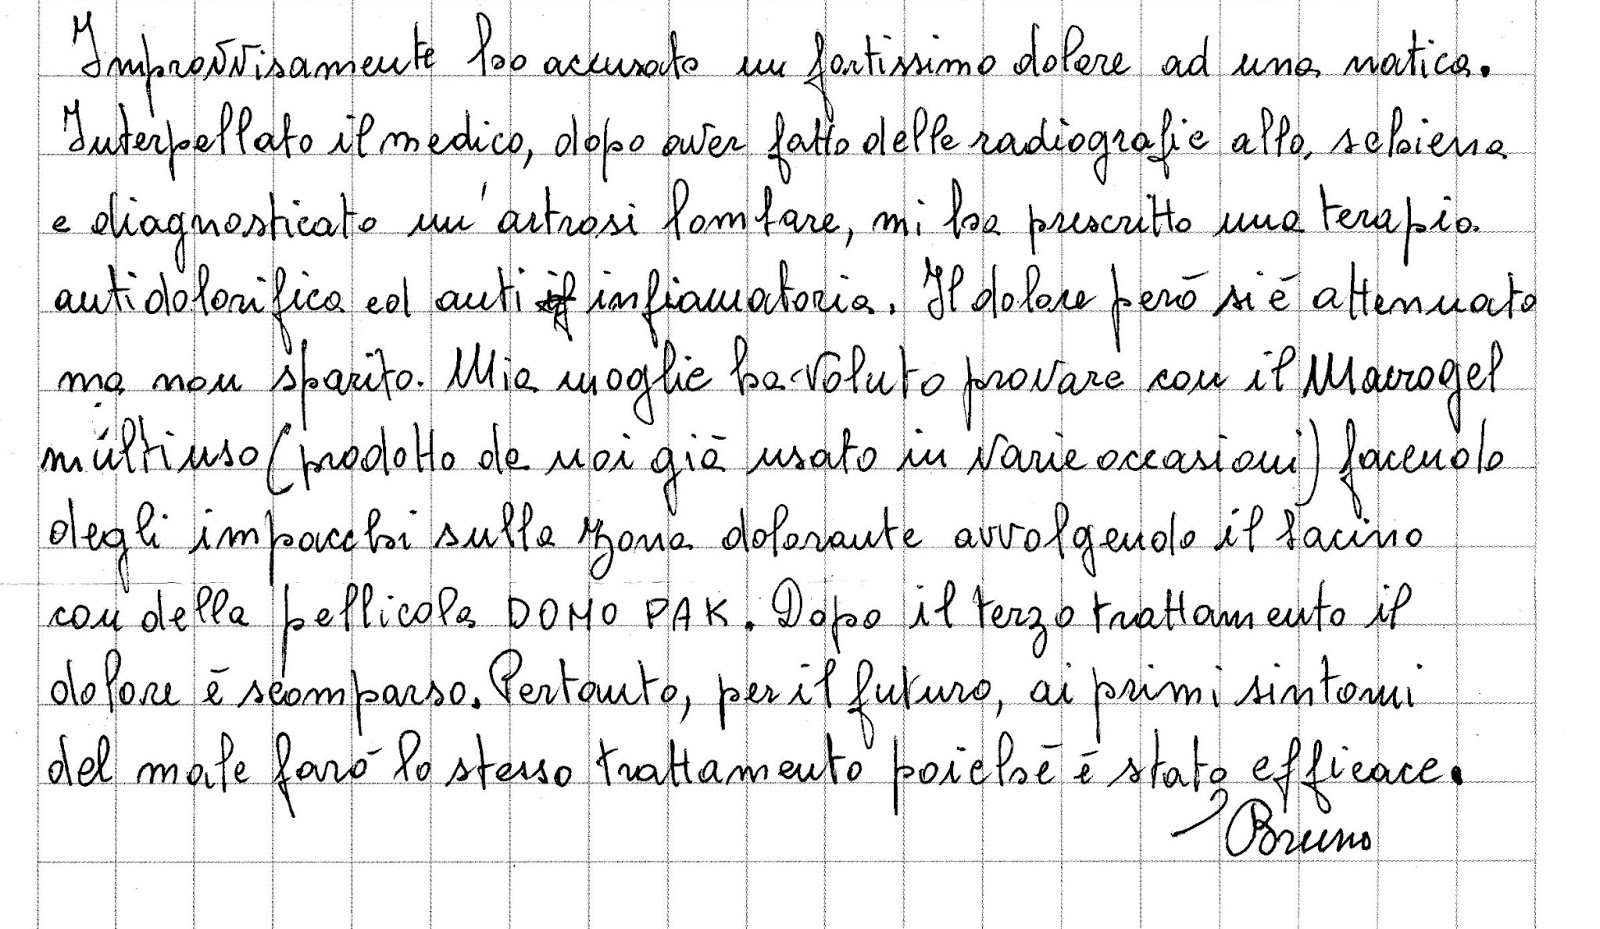 Improvvisamente ho accusato un fortissimo dolore ad una natica.
Interpellato il medico, dopo aver fatto delle radiografie alla schiena
e diagnosticato un'artrosi lombare, mi ha prescritto una terapia
antidolorifica ed anti infiammatoria. Il dolore però si è attenuato
ma non sparito. Mia moglie ha voluto provare con il Macrogel
multiuso (prodotto da noi già usato in varie occasioni) facendo
degli impacchi sulla zona dolorante avvolgendo il bacino
con della pellicola DOMO PAK. Dopo il terzo trattamento il
dolore è scomparso. Pertanto, per il futuro, ai primi sintomi
del male farò lo stesso trattamento poichè è stato efficace.
Bruno